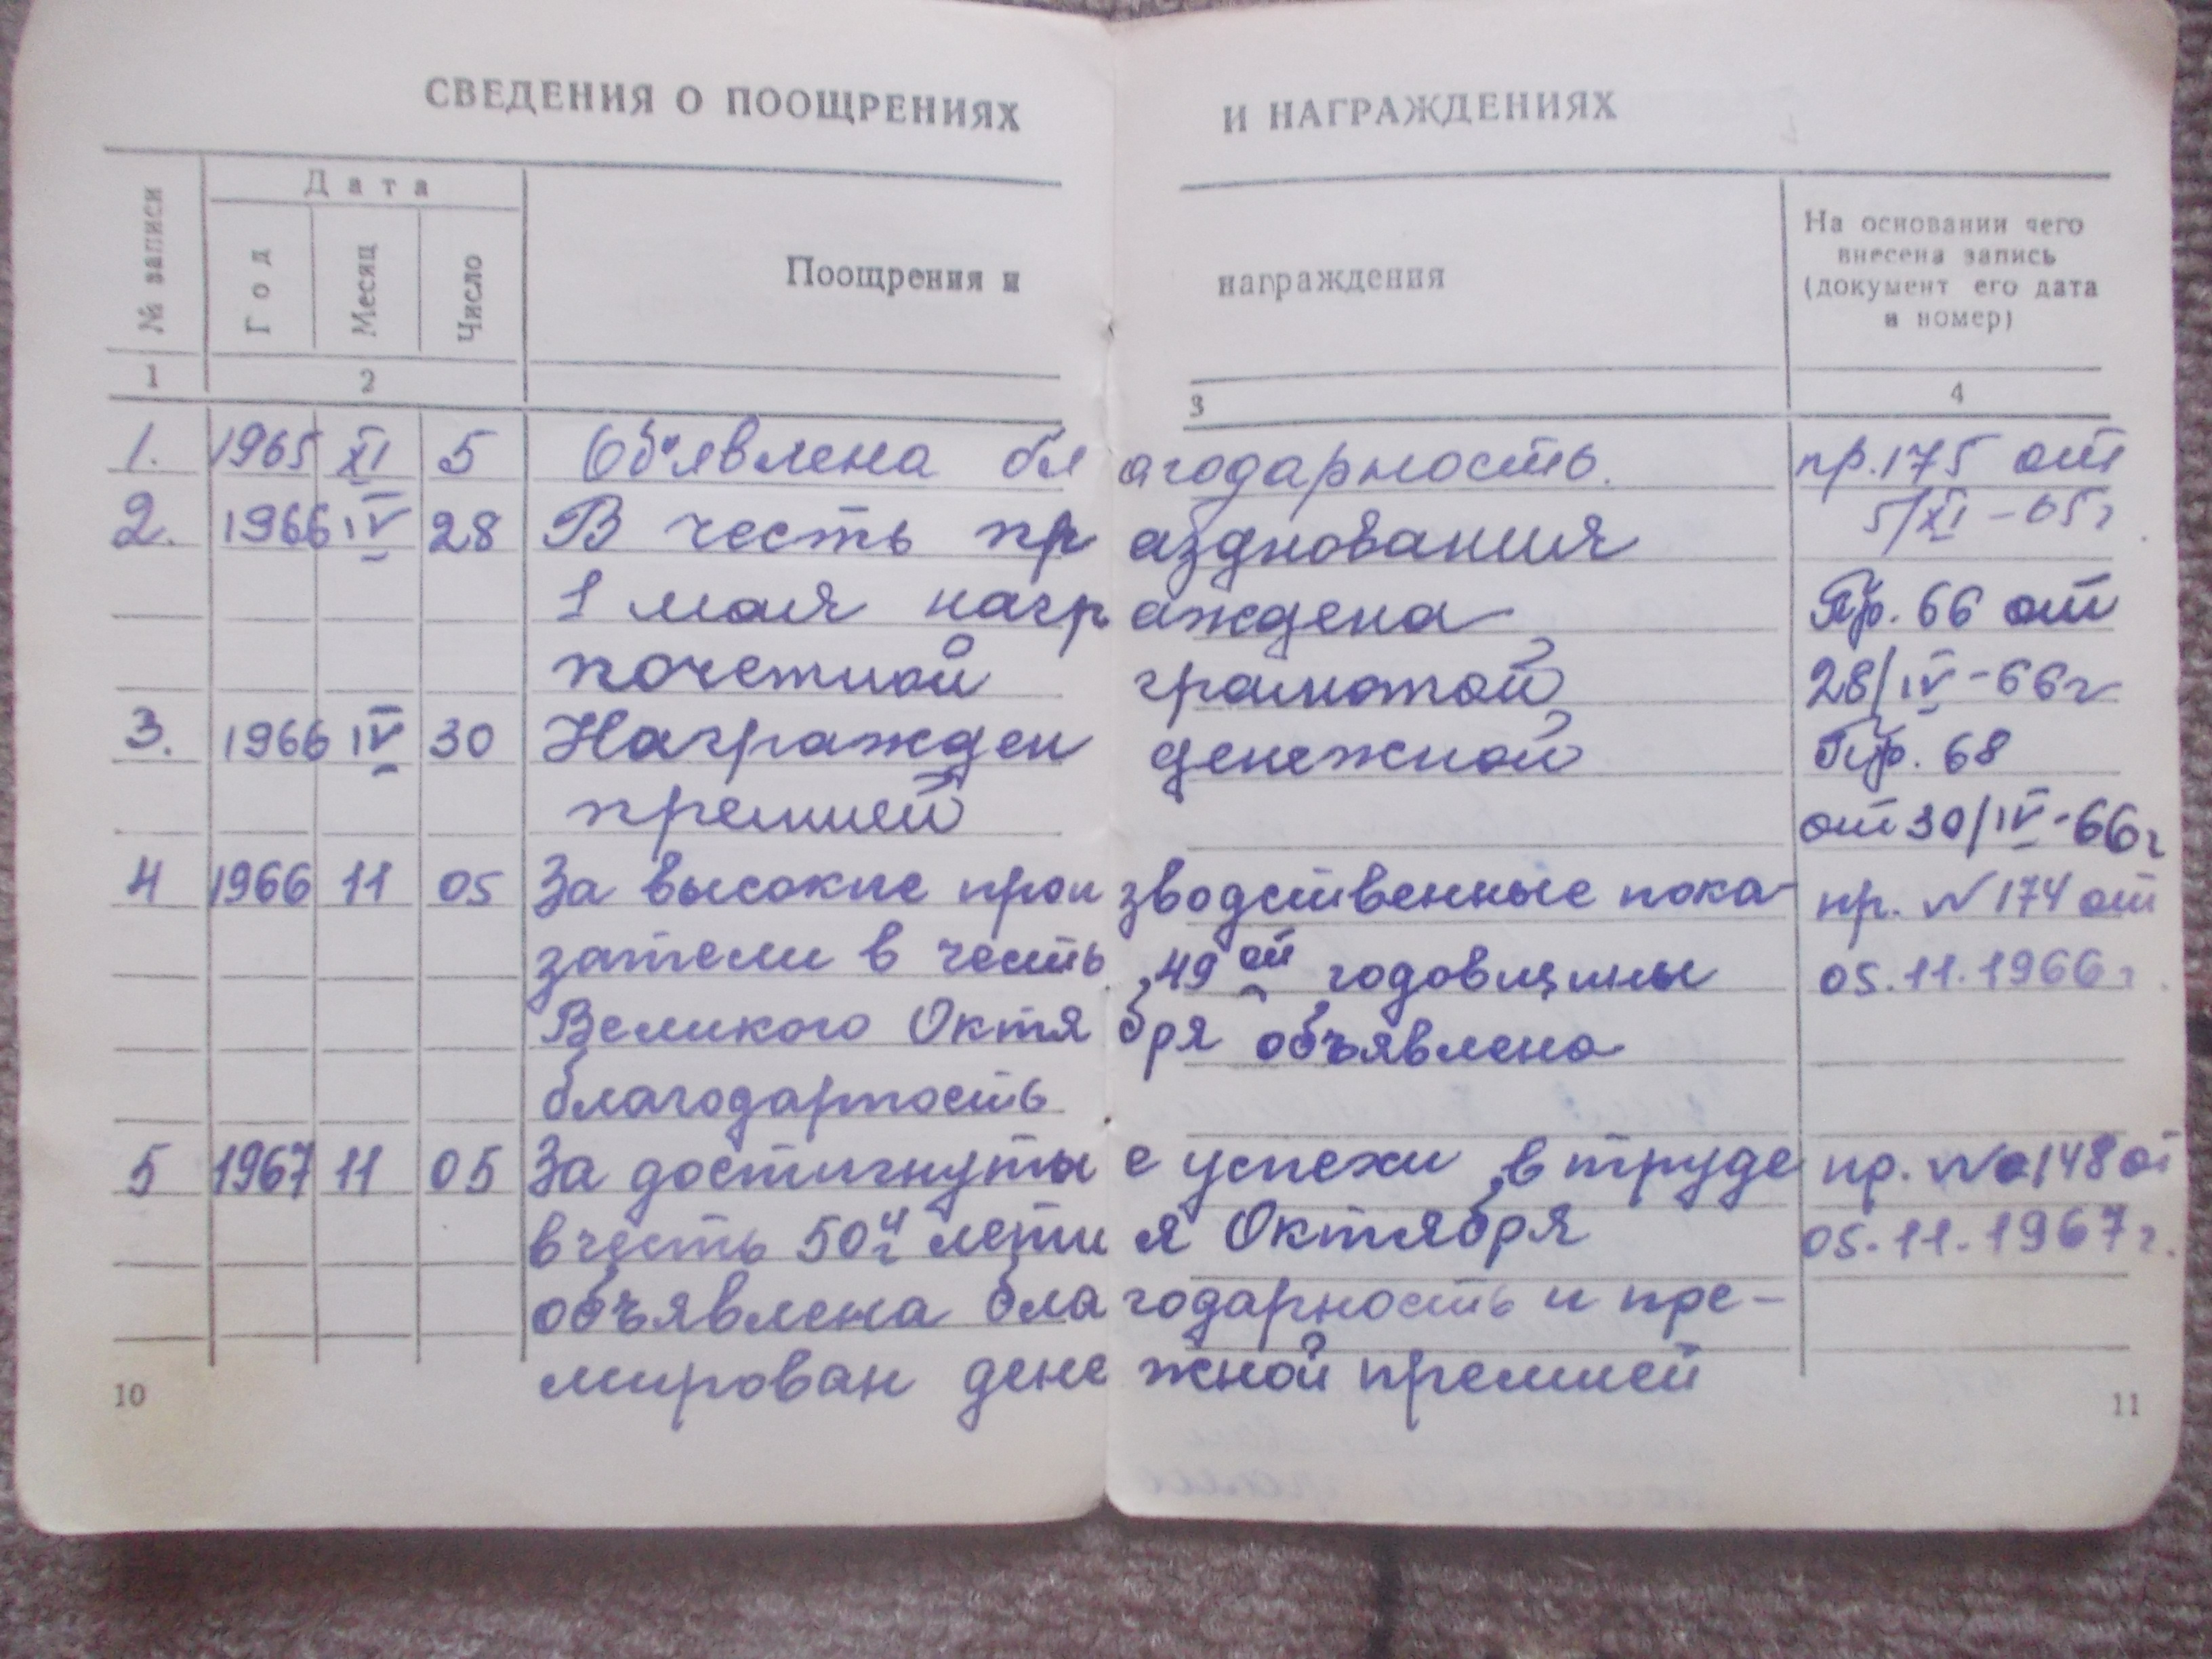 СВЕДЕНИЯ О ПООЩРЕНИЯХ И НАГРАЖДЕНИЯХ
№ записи Дата Поощрения и награждения На основании чего
внесена запись
(документ его дата
и номер)
Год Месяц Число
1 2 3 4
1. 1965 XI 5 Об'явлена благодарность. пр. 175 от
5/XI-65г
2. 1966 IV 28 В честь празднования
1 мая награждена Пр. 66 от
почетной грамотой 28/IV-66г
3. 1966 IV 30 Награжден денежной Пр. 68
премией от 30/IV-66г
4 1966 11 05 За высокие производственные пока- пр. № 174 от
затели в честь 49ой годовщины 05.11.1966г.
Великого Октября объявлена
благодарность
5 1967 11 05 За достигнутые успехи в труде пр. № 148 от
в честь 50и летия Октября 05.11.1967г.
объявлена благодарность и пре-
мирован денежной премией
10 11